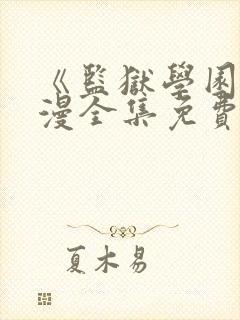 《監獄學園
漫全集免費
夏木易